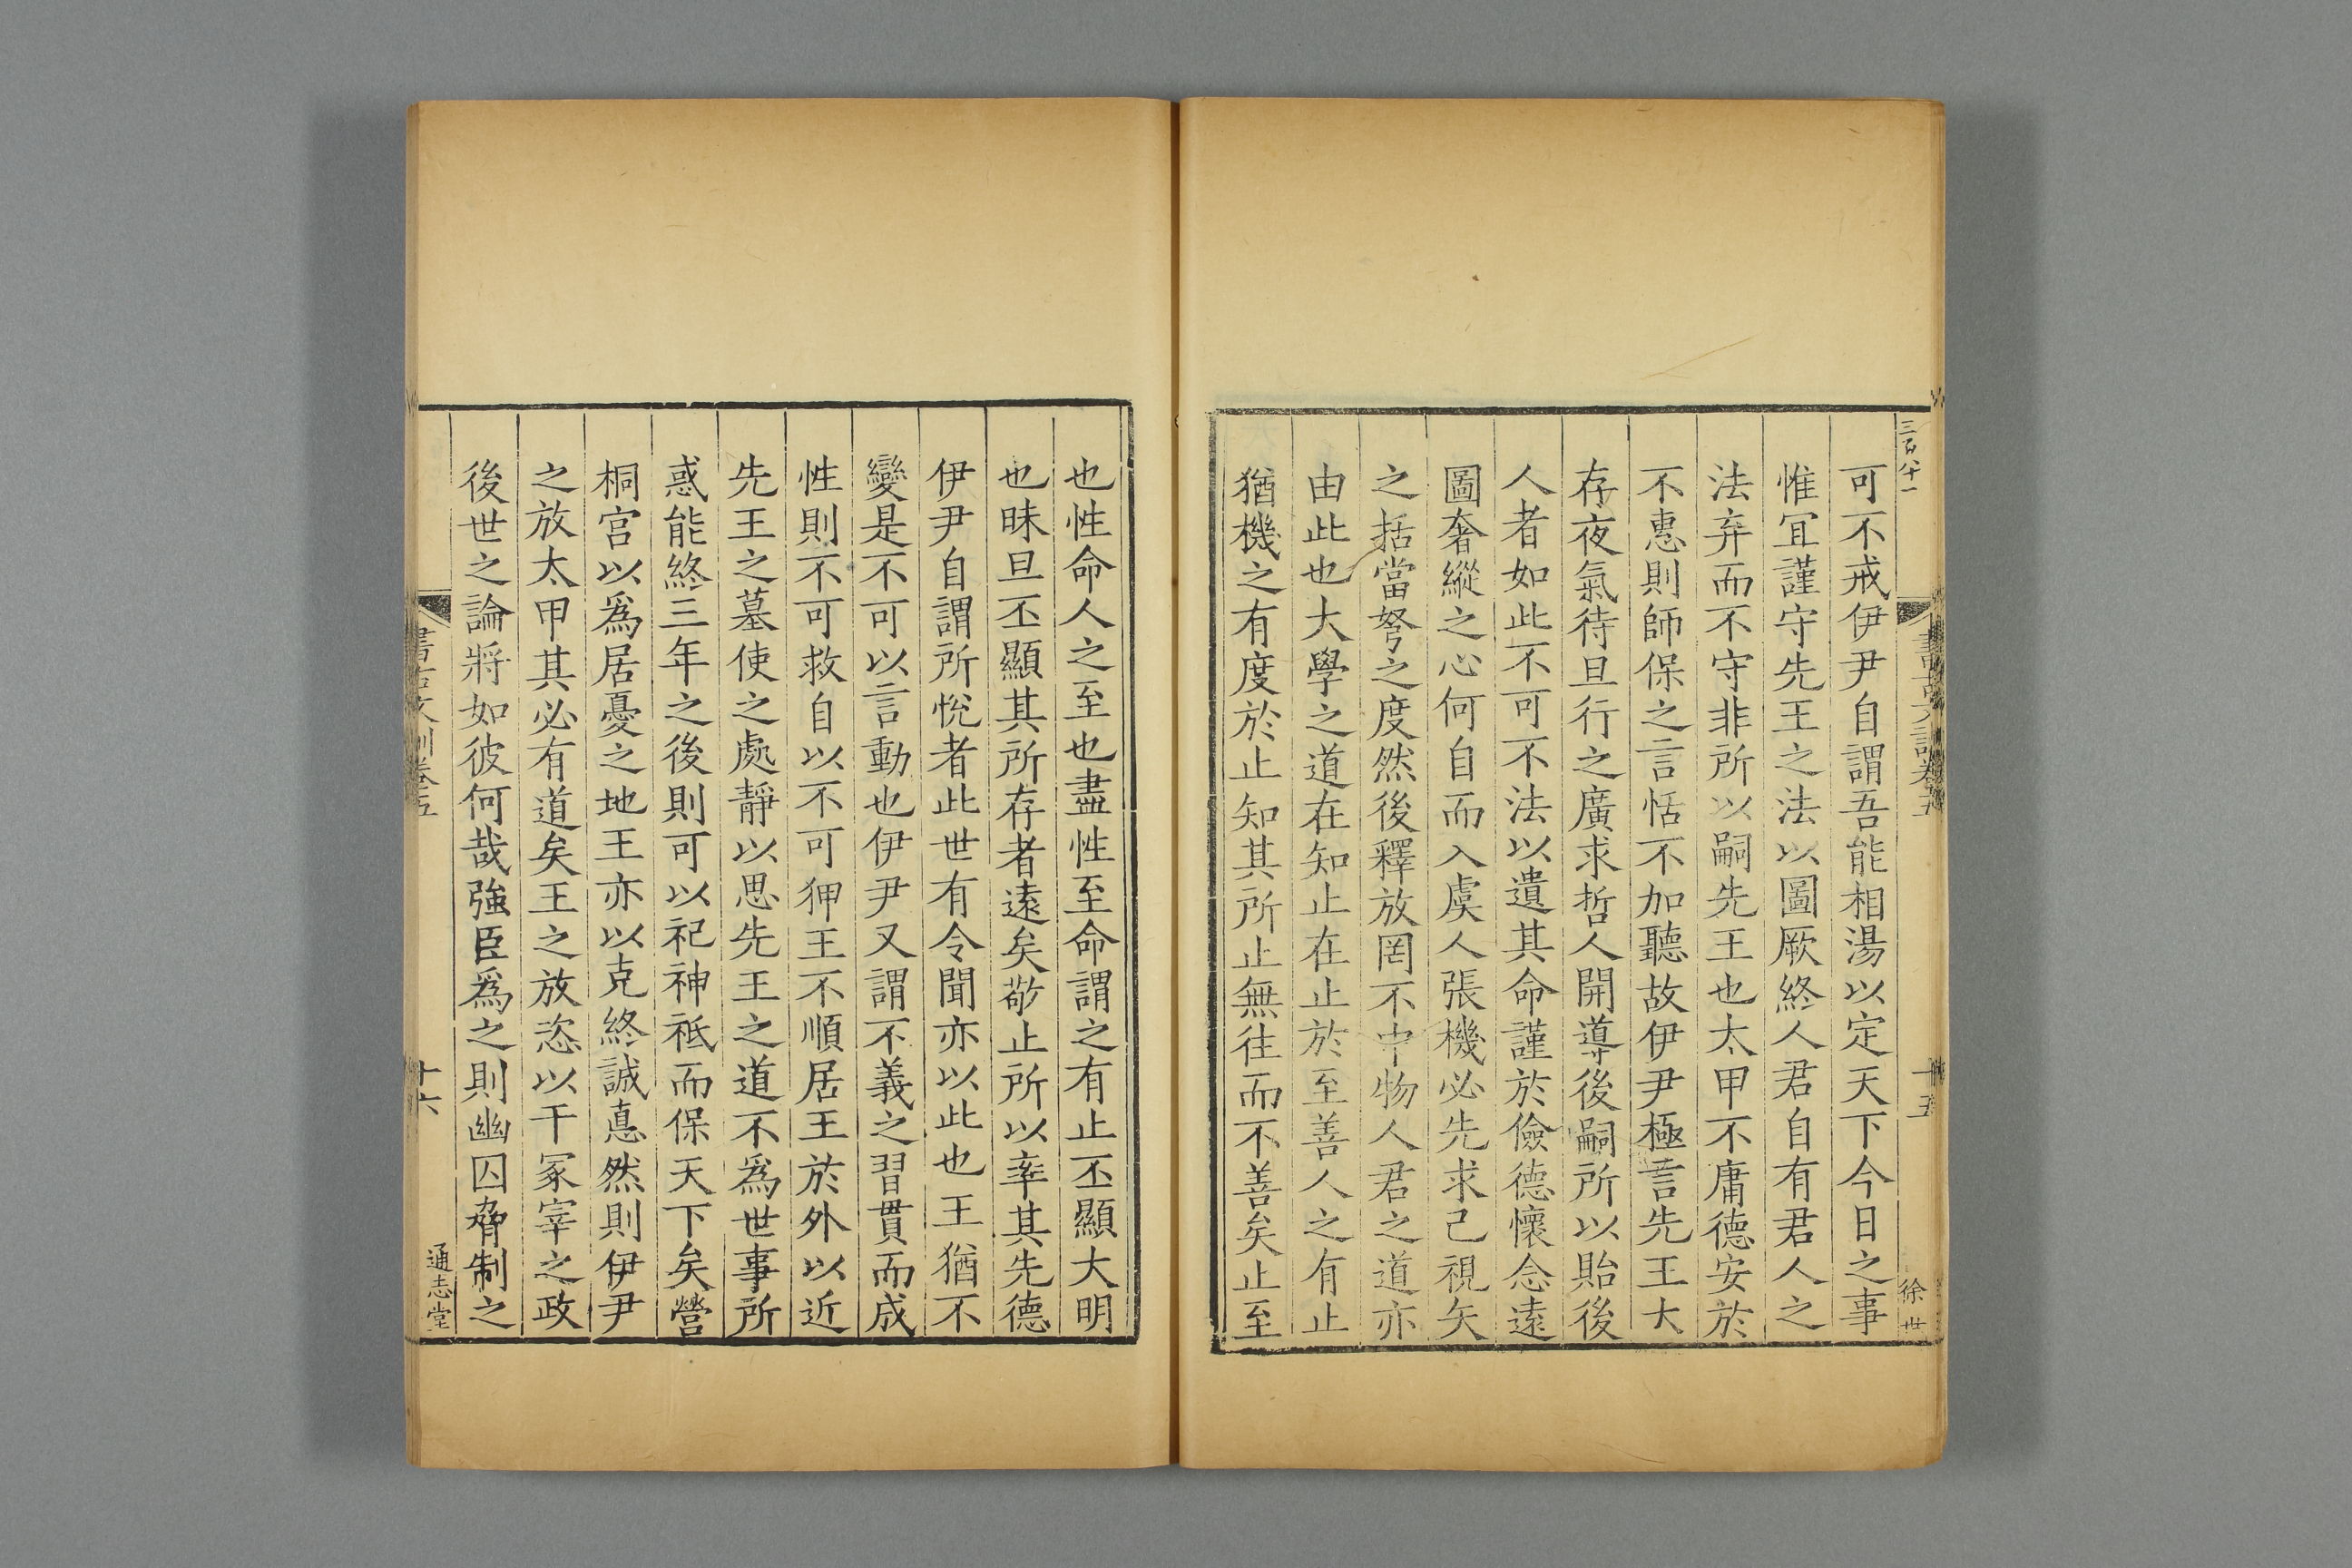 三百八十一
書古文訓卷五
十五
徐世
可不戒伊尹自謂吾能相湯以定天下今日之事
惟宜謹守先王之法以圖厥終人君自有君人之
法弃而不守非所以嗣先王也太甲不庸德安於
不惠則師保之言恬不加聽故伊尹極言先王大
存夜氣待旦行之廣求哲人開導後嗣所以貽後
人者如此不可不法以遺其命謹於儉德懷念遠
圖奢縱之心何自而入虞人張機必先求己視矢
之括當弩之度然後釋放罔不中物人君之道亦
由此也大學之道在知止在止於至善人之有止
猶機之有度於止知其所止無往而不善矣止至
也性命人之至也盡性至命謂之有止丕顯大明
也昧旦丕顯其所存者遠矣欽止所以率其先德
伊尹自謂所悅者此世有令聞亦以此也王猶不
變是不可以言動也伊尹又謂不義之習貫而成
性則不可救自以不可狎王不順居王於外以近
先王之墓使之處靜以思先王之道不為世事所
惑能終三年之後則可以祀神祗而保天下矣營
桐宮以為居憂之地王亦以克終誠悳然則伊尹
之放太甲其必有道矣王之放恣以干冢宰之政
後世之論將如彼何哉強臣為之則幽囚脅制之
書古文訓卷五
十六
通志堂